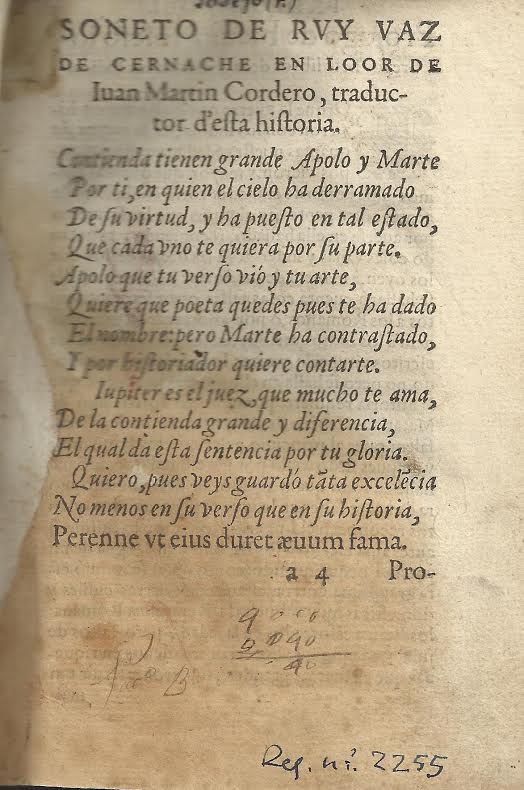 SONETO DE RVY VAZ
DE CERNACHE EN LOOR DE
Iuan Martin Cordero, traduc-
tor d'esta historia.
Contienda tienen grande Apolo y Marte
Por ti, en quien el cielo ha derramado
De su virtud, y ha puesto en tal estado,
Que cada vno te quiera por su parte.
Apolo que tu verso vió y tu arte,
Quiere que poeta quedes pues te ha dado
El nombre: pero Marte ha contrastado,
Y por historiador quiere contarte.
Iupiter es el juez, que mucho te ama,
De la contienda grande y diferencia,
El qual da esta sentencia por tu gloria.
Quiero, pues veys guardó tãta excelẽcia
No menos en su verso que en su historia,
Perenne vt eius duret æuum fama.
a 4 Pro-
Reg. nº. 2255